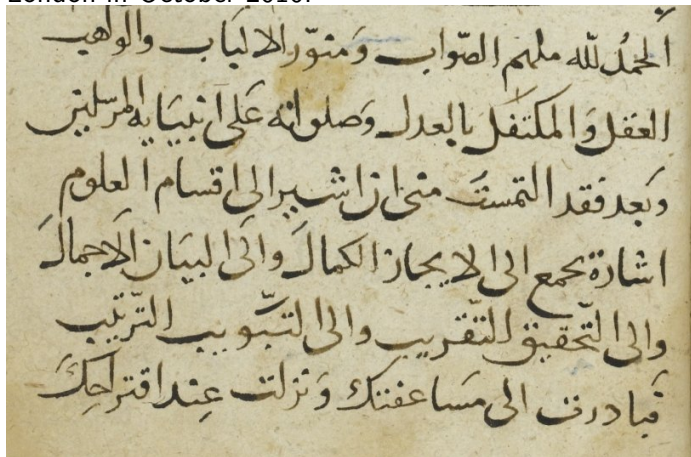 London in October 2010.
الحمد لله ملهم الصواب ومنوّر الالباب والواهب
العقل والمكتفل بالعدل وصلواته على انبيايه المرسلين
وبعد فقد التمست منى ان اشير الى اقسام العلوم
اشارة تجمع الى الايجاز الكمال والى البيان الاجمال
والى التّحقيق التّقريب والى التّبويب التّرتيب
فبادرت الى مساعفتك ونزلت عند اقتراحك